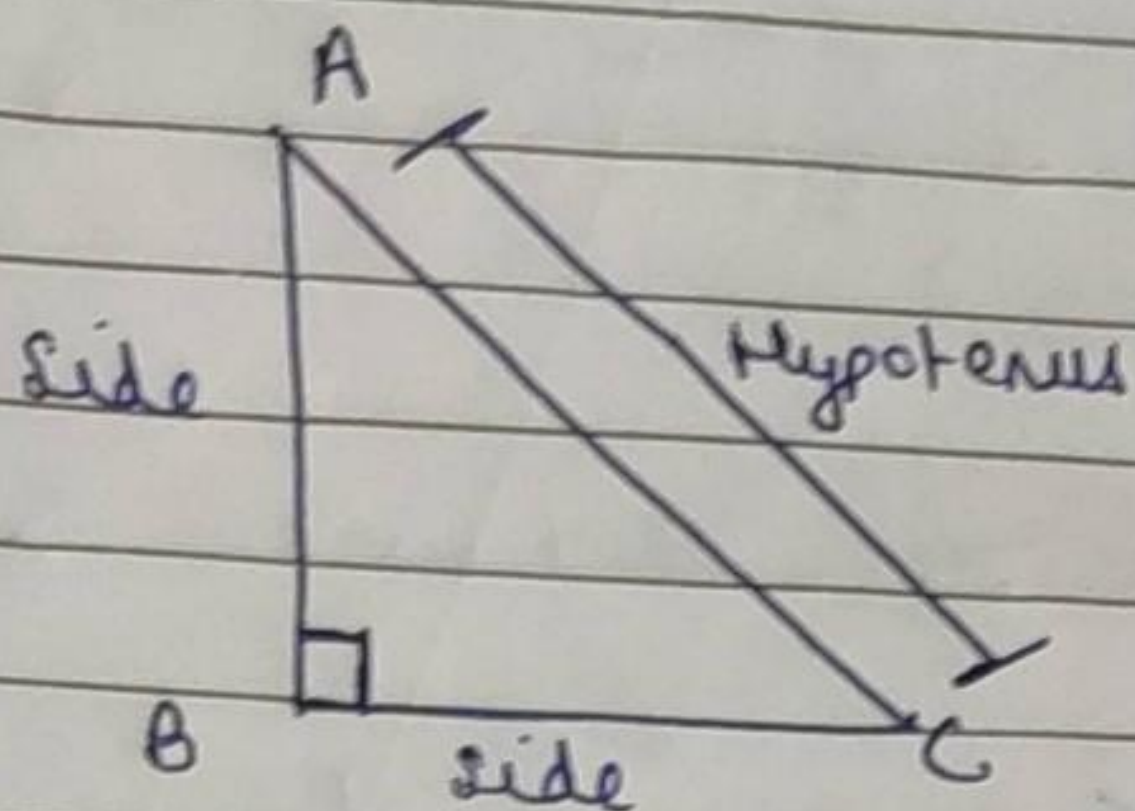 A
Side
Hypotenus
B
side
C